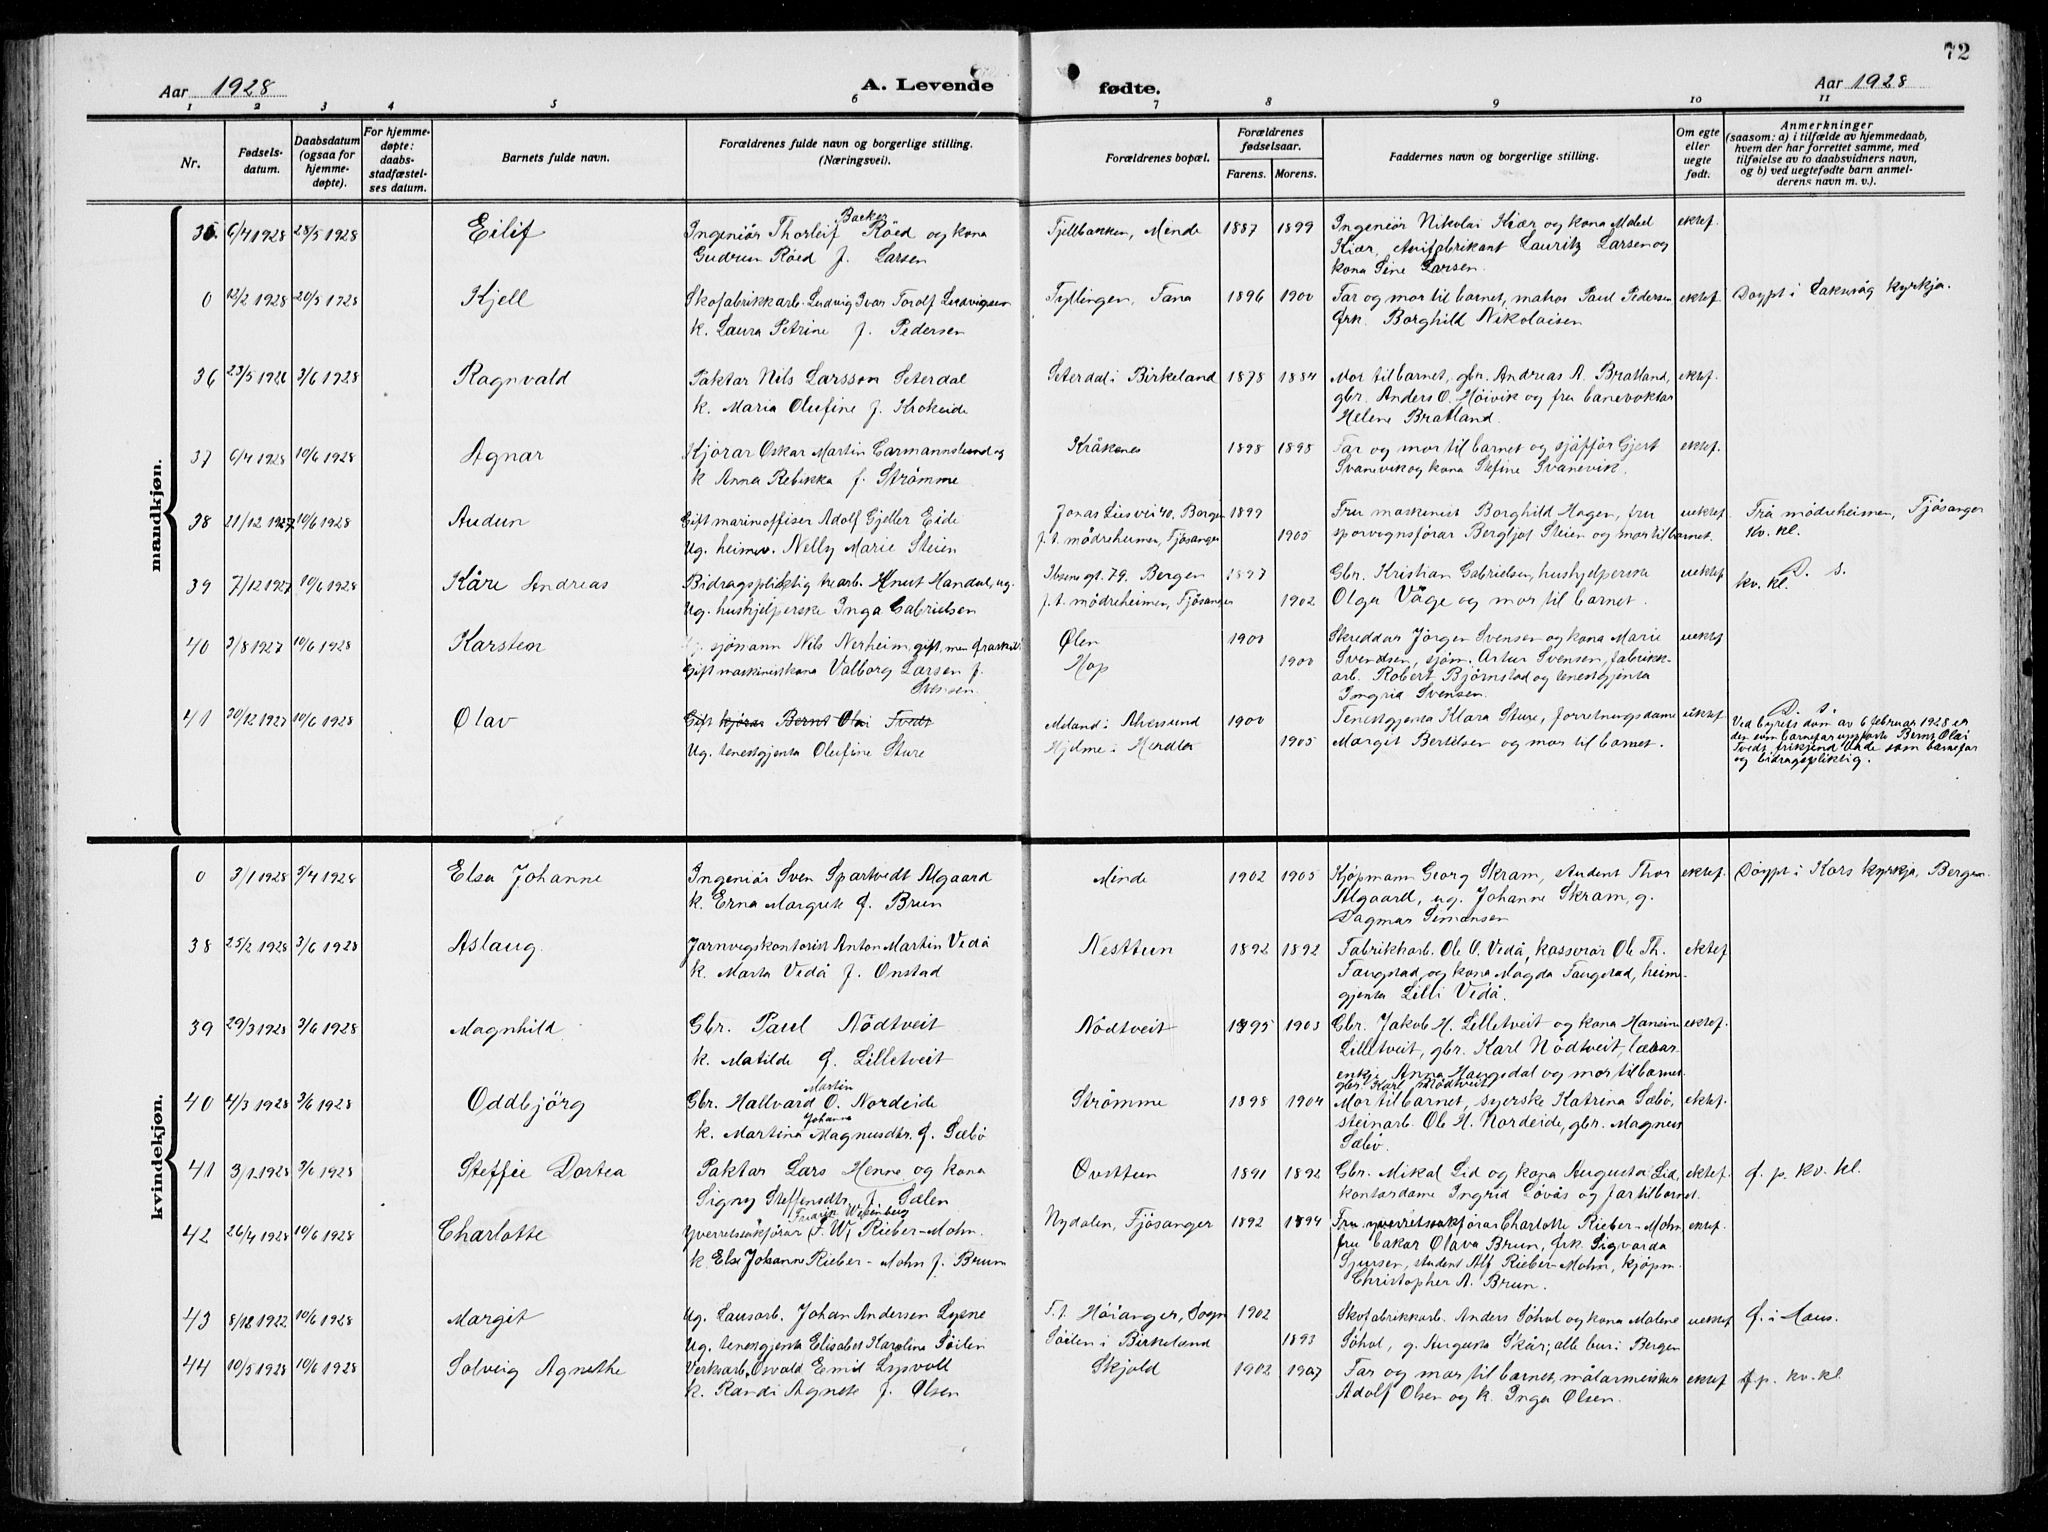 72
Aar 1928
A. Levende
fødte.
Aar 1928
1 2 3 4 5 6 7 8 9 10 11
Nr.
Fødsels-
datum.
Daabsdatum
(ogsaa for
hjemme-
døpte).
For hjemme-
døpte:
daabs-
stadfæstel-
ses datum.
Barnets fulde navn.
Forældrenes fulde navn og borgerlige stilling.
(Næringsvei).
Forældrenes bopæl.
Forældrenes
fødselsaar.
Farens. Morens.
Faddernes navn og borgerlige stilling.
Om egte
eller
uegte
født.
Anmerkninger
(saasom: a) i tilfælde av hjemmedaab,
hvem der har forrettet samme, med
tilføielse av to daabsvidners navn,
og b) ved uegtefødte barn anmel-
derens navn m. v.).
mandkjøn.
35. 6/4 1928 28/5 1928 Eilif
Backer
Ingeniör Thorleif Röed og kona
Gudrun Röed f. Larsen
Fjellbakken, Minde 1887 1899
Ingeniör Nikolai Kiær og kona Mabel
Kiær, Lauritz Larsen og
kona Sine Larsen.
ektef.
0 12/2 1928 20/5 1928 Kjell
Skofabrikkarb. Ludvig Ivar Torolf Ludvigsen
k. Laura Petrine f. Pedersen
Tyllingen, Fana 1896 1900
Far og mor til barnet, matros Paul Pedersen
frk. Borghild Nikolaisen
ektef. Döypt i Laksevåg kyrkja.
36 23/5 1928 3/6 1928 Ragnvald
Paktar Nils Larsson Seterdal
k. Maria Olufine f. Krokeide
Seterdal i Birkeland 1878 1884
Mor til barnet, gbr. Andreas A. Bratland,
gbr. Anders O. Höivik og fru banevoktar
Helene Bratland.
ektef.
37 6/4 1928 10/6 1928 Agnar
Kjörar Oskar Martin Garmannslund og
k Anna Rebikka f. Strömme.
Kråkenes 1898 1898
Far og mor til barnet og sjåfför Gjert
Svanevik og kona Stefine Svanevik.
ektef.
38 21/12 1927 10/6 1928 Audun
Gift marineoffiser Adolf Gjeller Eide
Ug. heimev. Nelly Marie Steien
Jonas Liesvei 40. Bergen 1899
f.t. mödreheimen, Fjösanger 1905
Fru maskinist Borghild Hagen, fru
sporvognsförar Bergljot Steien og mor til barnet.
uektef. Frå mödreheimen, Fjösanger
kv. kl.
39 7/12 1927 10/6 1928 Kåre Andreas
Bidragspliktig trearb. Knut Mandal, ug.
Ug. hushjelperske Inga Gabrielsen
Ibsens gt. 79. Bergen 1897
f.t. mödreheimen, Fjösanger 1902
Gbr. Kristian Gabrielsen, hushjelperske
Olga Våge og mor til barnet.
uektef D. s.
kv. kl.
40 3/8 1927 10/6 1928 Karsten
sjömann Nils Nerheim, gift, men fraskilt
Gift maskinistkona Valborg Larsen f.
Svensen.
Ølen 1900
Hop 1900
Skreddar Jörgen Svensen og kona Marie
Svendsen, sjöm. Artur Svensen, fabrikk-
arb. Robert Björnstad og tenestgjenta
Ingrid Svensen.
uektef
41 30/12 1927 10/6 1928 Olav
Gift kjörar Bernt Olai Tvedt
Ug. tenestgjenta Olufine Sture
Meland i Alversund 1900
Hjelme i Herdla 1905
Tenestgjenta Klara Sture, forretningsdame
Margit Bertelsen og mor til barnet.
uektef D. s.
Ved byrets dom av 6 februar 1928 er
den som barnefar uppförte Bernt Olai
Tvedt frikjend både som barnefar
og bidragspliktig.
kvindekjøn.
0 3/1 1928 5/4 1928 Elsa Johanne
Ingeniör Sven Spartvedt Algaard
k. Erna Margrete f. Brun
Minde 1902 1905
Kjöpmann Georg Skram, student Thor
Algaard, ug. Johanne Skram, g.
Dagmar Simonsen
ektef. Döypt i Kors kyrkja, Bergen.
38 25/2 1928 3/6 1928 Aslaug.
Jarnvegskontorist Anton Martin Vedå
k. Marta Vedå f. Onstad
Nesttun 1892 1892
Fabrikkarb. Ole O. Vedå, kasserar Ole Th.
Taugstad og kona Magda Taugstad, heime-
gjenta Lilli Vedå.
ektef
39 29/3 1928 3/6 1928 Magnhild
Gbr. Paul Nödtveit
k. Matilde f. Lilletveit
Nödtveit 1895 1903
Gbr. Jakob H. Lilletveit og kona Hansine
Lilletveit, gbr. Karl Nödtveit, lærar-
enkje Anna Haugsdal og mor til barnet.
ektef.
40 4/3 1928 3/6 1928 Oddbjörg
Martin
Gbr. Hallvard O. Nordeide
Johanna
k. Martina Magnusdtr. f. Sæbö
Strömme 1898 1904
gbr. Karl Nödtveit
Mor til barnet, syerske Katrina Sæbö,
steinarb. Ole H. Nordeide, gbr. Magnus
Sæbö
ektef.
41 3/1 1928 3/6 1928 Steffie Dortea
Paktar Lars Henne og kona
Signy Steffensdtr. f. Sælen
Øvsttun 1891 1892
Gbr. Mikal Lid og kona Augusta Lid,
kontordame Ingrid Lövås og far til barnet.
ektef. f. p. kv. kl.
42 26/4 1928 10/6 1928 Charlotte
Fredrik Wesenberg
Yverrettssakförar F. W. Rieber-Mohn.
k. Else Johanne Rieber-Mohn f. Brun
Nydalen, Fjösanger 1892 1894
Fru yverrettssakförar Charlotte Rieber-Mohn,
fru bakar Olava Brun, frk. Sigvarda
Sjursen, student Alf Rieber-Mohn, kjöpm.
Christopher A. Brun.
ektef.
43 8/12 1922 10/6 1928 Margit
Ug. Lausarb. Johan Andersen Lysne
Ug. tenestgjenta Elisabet Karoline Söilen
F. t. Höianger, Sogn 1902
Söilen i Birkeland 1893
Skofabrikkarb. Anders Söhol og kona Malene
Söhol, g. Augusta Skår; alle bur i Bergen
uektef f. i Haus.
44 10/5 1928 10/6 1928 Solveig Agnethe
Verksarb. Osvald Emil Lysvoll
k. Randi Agnete f. Olsen
Skjold 1902 1907
Far og mor til barnet, målarmeister
Adolf Olsen og k. Inga Olsen.
ektef f.p. kv. kl.